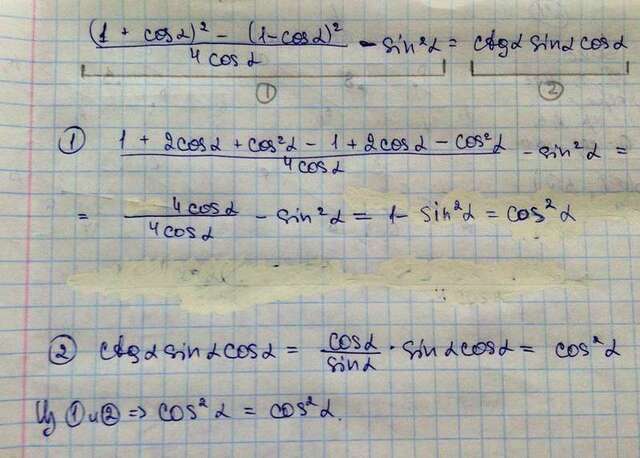 (1 + cosα)² - (1-cosα)² / 4cosα - sin²α = ctgα sinα cosα
① ②
① 1 + 2cosα + cos²α - 1 + 2cosα - cos²α / 4cosα - sin²α =
= 4cosα / 4cosα - sin²α = 1 - sin²α = cos²α
② ctgα sinα cosα = cosα / sinα · sinα cosα = cos²α
Из ① и ② => cos²α = cos²α.